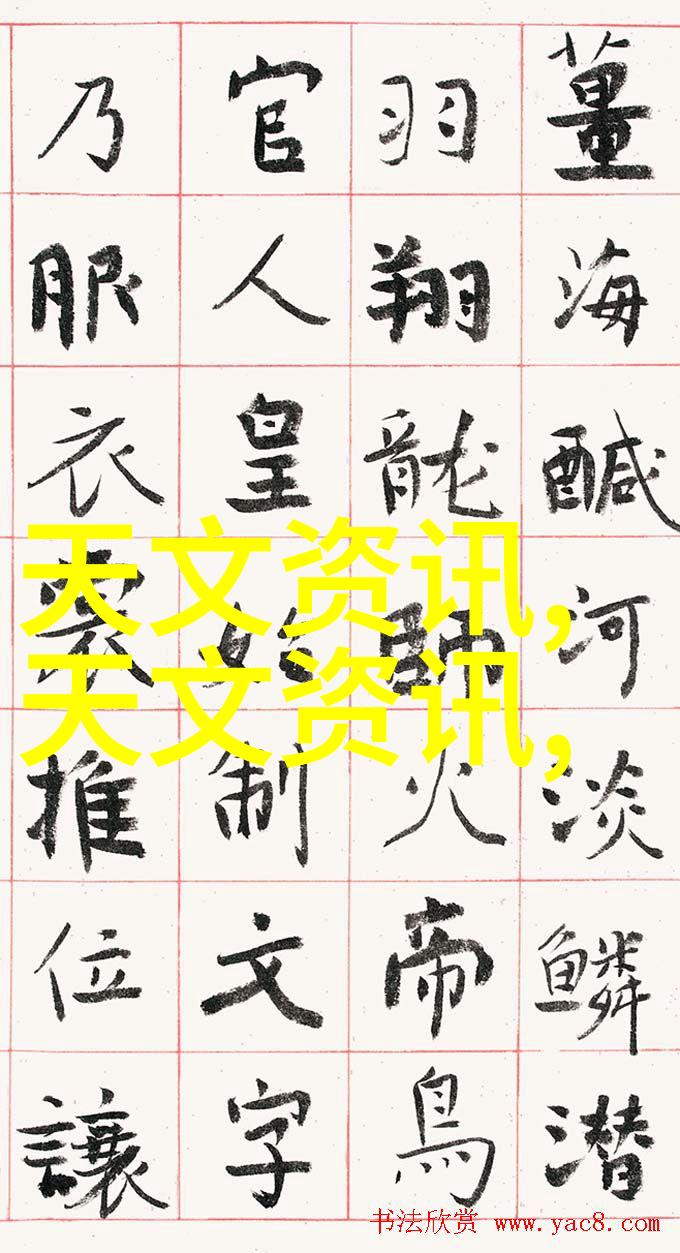 薑海醎河淡鱗潜
羽翔龍師火帝鳥
官人皇始制文字
乃服衣裳推位讓
天文资讯,
天文资讯,
书法欣赏 www.yac8.com